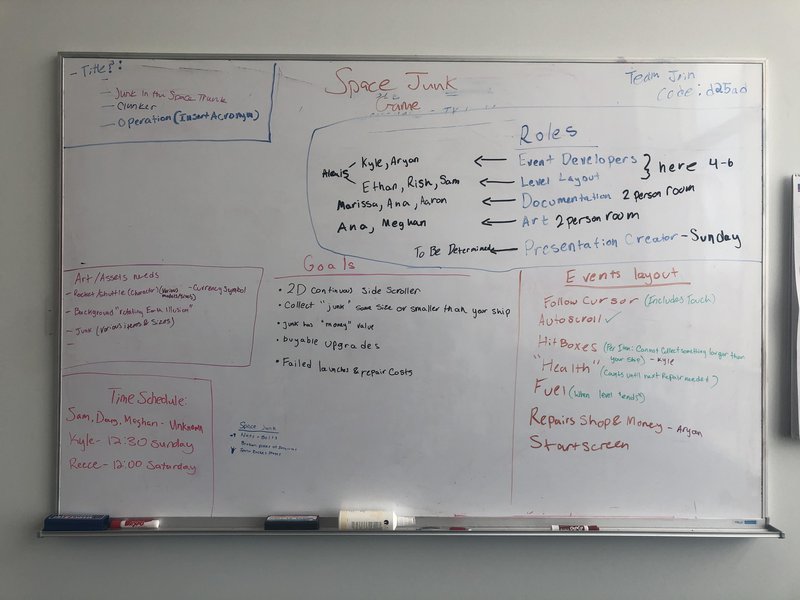 - Title?:
- Junk in the Space Trunk
- Clunker
- Operation (Insert Acronym)
Space Junk
Game
Team Join
code: d25ad
Roles
Alexis
Kyle, Aryan
Event Developers
here 4-6
Ethan, Rish, Sam
Level Layout
Marissa, Ana, Aaron
Documentation 2 person room
Ana, Meghan
Art 2 person room
To Be Determined
Presentation Creator - Sunday
Art/Assets needs
- Rocket/Shuttle (Character) (Various models/sizes) - Currency Symbol
- Background "rotating Earth Illusion"
- Junk (various items & sizes)
-
Time Schedule:
Sam, Meghan - Unknown
Kyle - 12:30 Sunday
Reece - 12:00 Saturday
Goals
• 2D continuous side scroller
• Collect "junk" same size or smaller than your ship
• junk has "money" value
• buyable upgrades
• Failed launches & repair costs
Space Junk
Events layout
Follow Cursor (Includes Touch)
Autoscroll ✓
Hit Boxes (Per Item: Cannot collect something larger than
your ship) - Kyle
"Health" (Counts until next repair needed)
Fuel (When level "ends")
Repairs Shop & Money - Aryan
Start screen
Expo